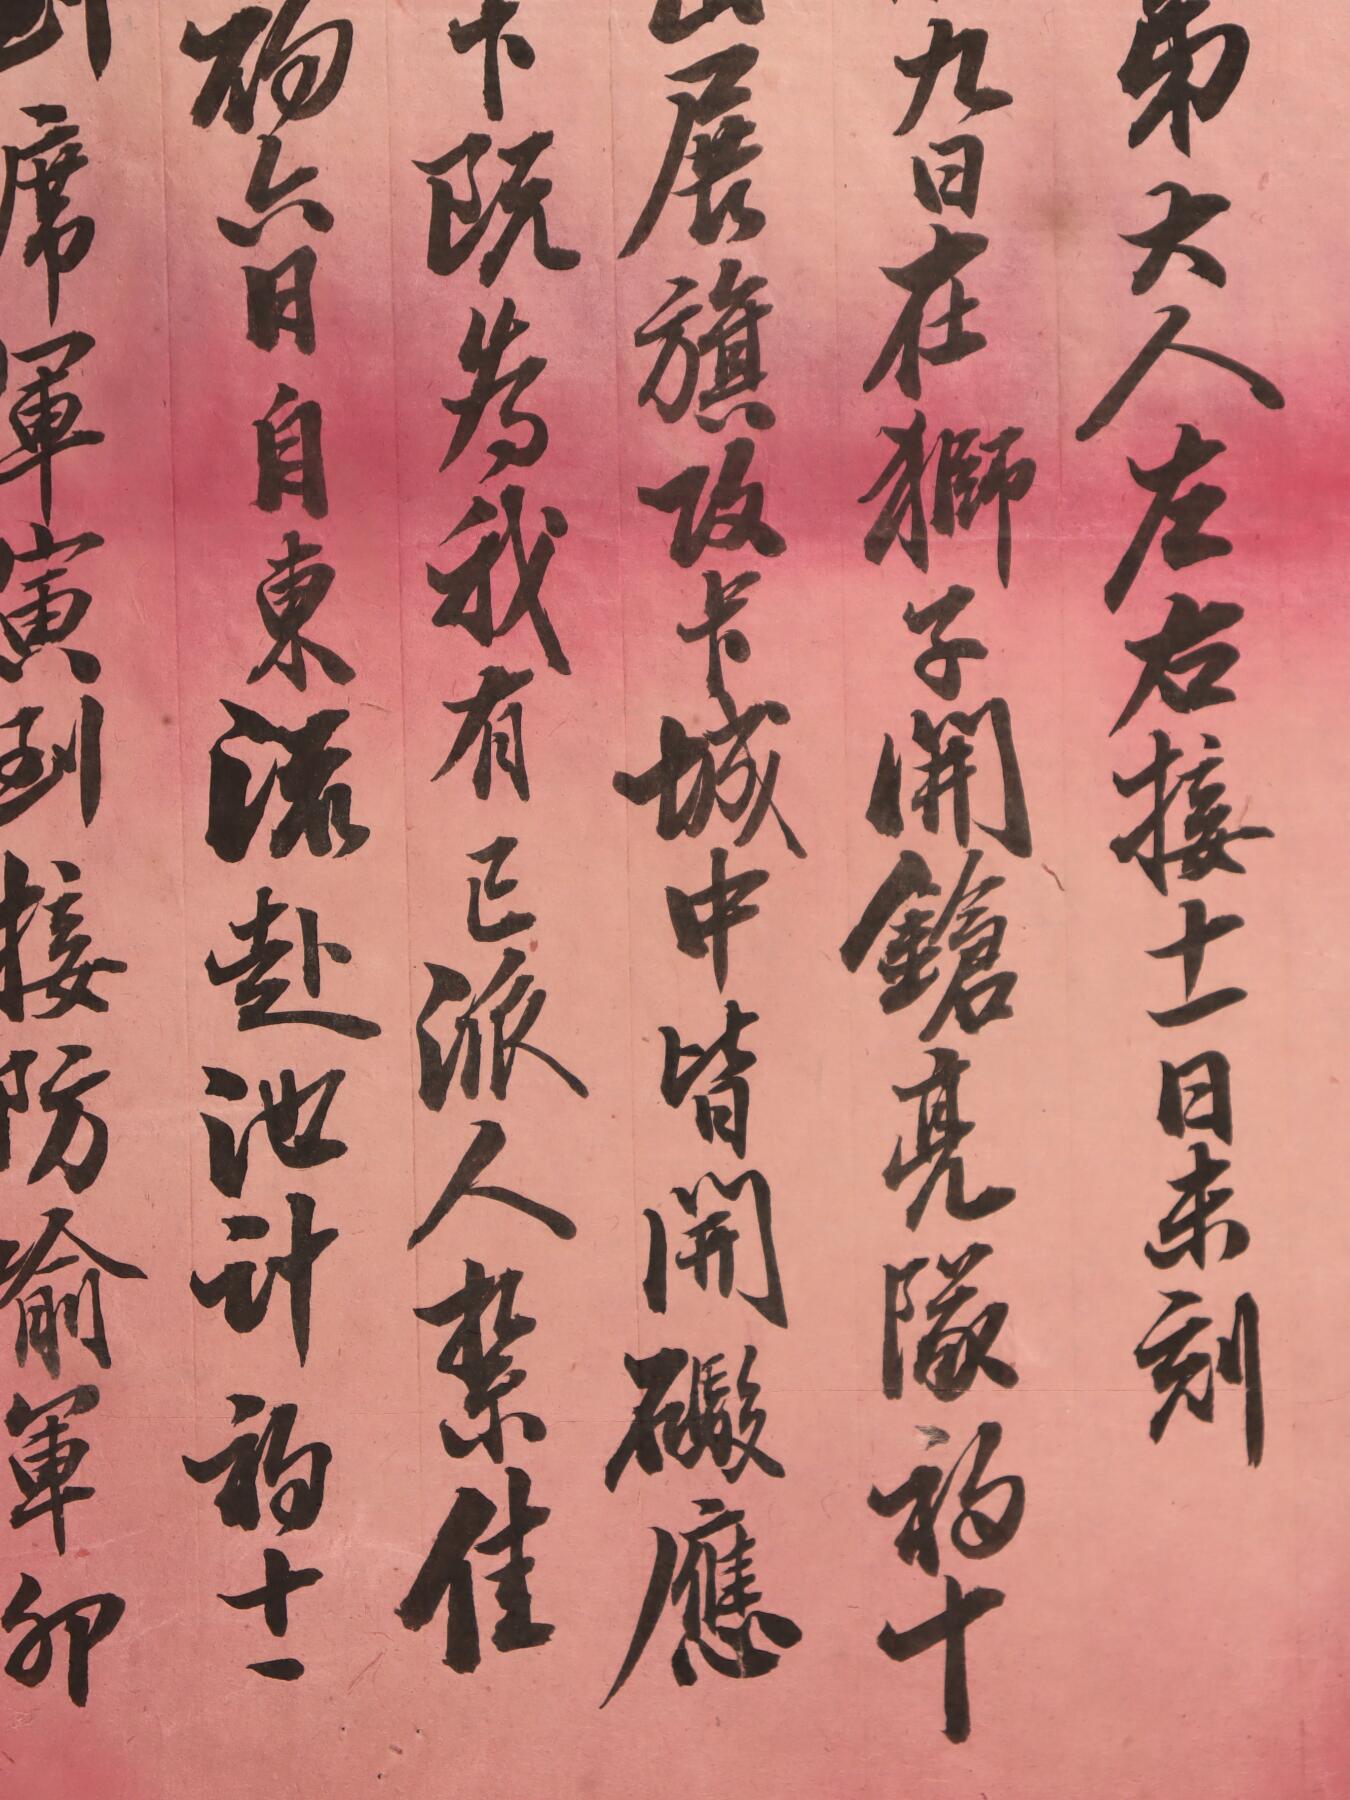 弟大人左右接十一日未刻
九日在獅子開鎗亮隊初十
展旗攻卡城中皆開礮應
卡既為我有已派人紮佳
初六日自東流赴池計初十一
席軍寅到接防喻軍卯